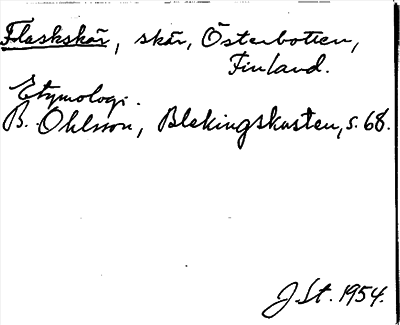 Flaskskär, skär, Österbotten,
Finland.
Etymologi.
B. Ohlsson, Blekingskusten, s. 68.
J. St. 1954.